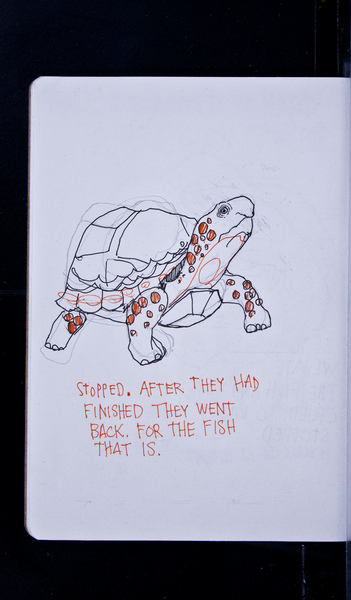 STOPPED. AFTER THEY HAD
FINISHED THEY WENT
BACK. FOR THE FISH
THAT IS.